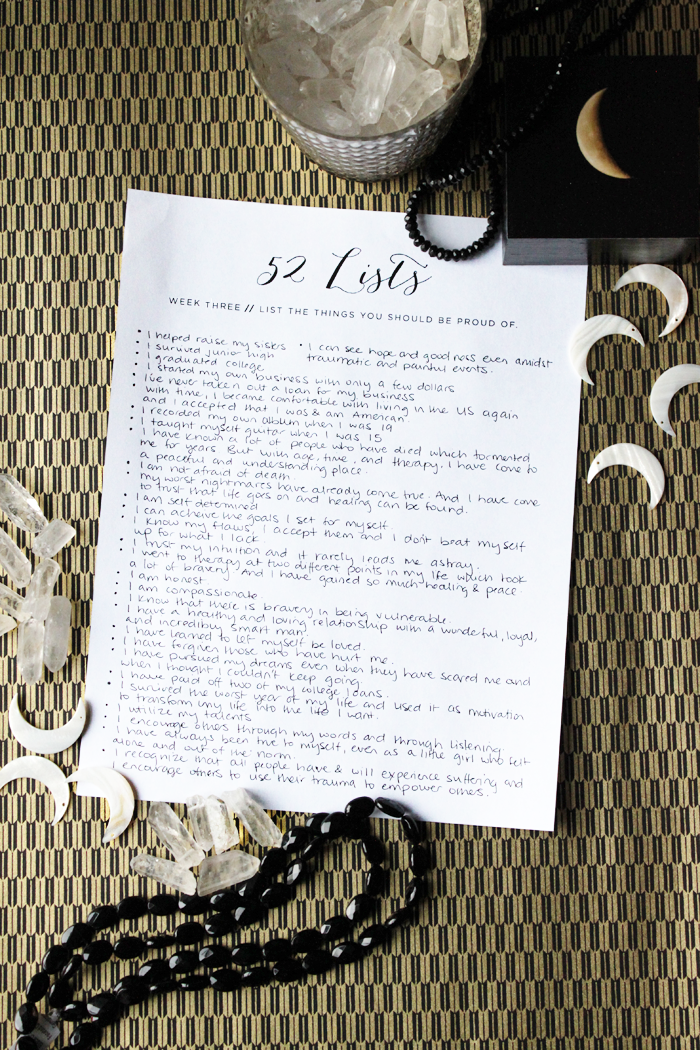 52 Lists
WEEK THREE // LIST THE THINGS YOU SHOULD BE PROUD OF.
• I helped raise my sisters
• I survived junior high
• I graduated college
• I can see hope and goodness even amidst
traumatic and painful events.
• I started my own business with only a few dollars
• I've never taken out a loan for my business
• With time, I became comfortable with living in the US again
and I accepted that I was & am American.
• I recorded my own album when I was 19
• I taught myself guitar when I was 15
• I have known a lot of people who have died which tormented
me for years. But with age, time, and therapy, I have come to
a peaceful and understanding place.
• I am not afraid of death
• my worst nightmares have already come true. And I have come
to trust that life goes on and healing can be found.
• I am self determined
• I can acheive the goals I set for myself.
• I know my flaws, I accept them and I don't beat myself
up for what I lack.
• I trust my intuition and it rarely leads me astray.
• I went to therapy at two different points in my life which took
a lot of bravery. And I have gained so much healing & peace.
• I am honest
• I am compassionate
• I know that there is bravery in being vulnerable.
• I have a healthy and loving relationship with a wonderful, loyal,
and incredibly smart man.
• I have learned to let myself be loved.
• I have forgiven those who have hurt me.
• I have pursued my dreams even when they have scared me and
when I thought I couldn't keep going.
• I have paid of two of my college loans.
• I survived the worst year of my life and used it as motivation
to transform my life into the life I want.
• I utilize my talents
• I encourage others through my words and through listening.
• I have always been true to myself, even as a little girl who felt
alone and out of the norm.
• I recognize that all people have & will experience suffering and
I encourage others to use their trauma to empower others.